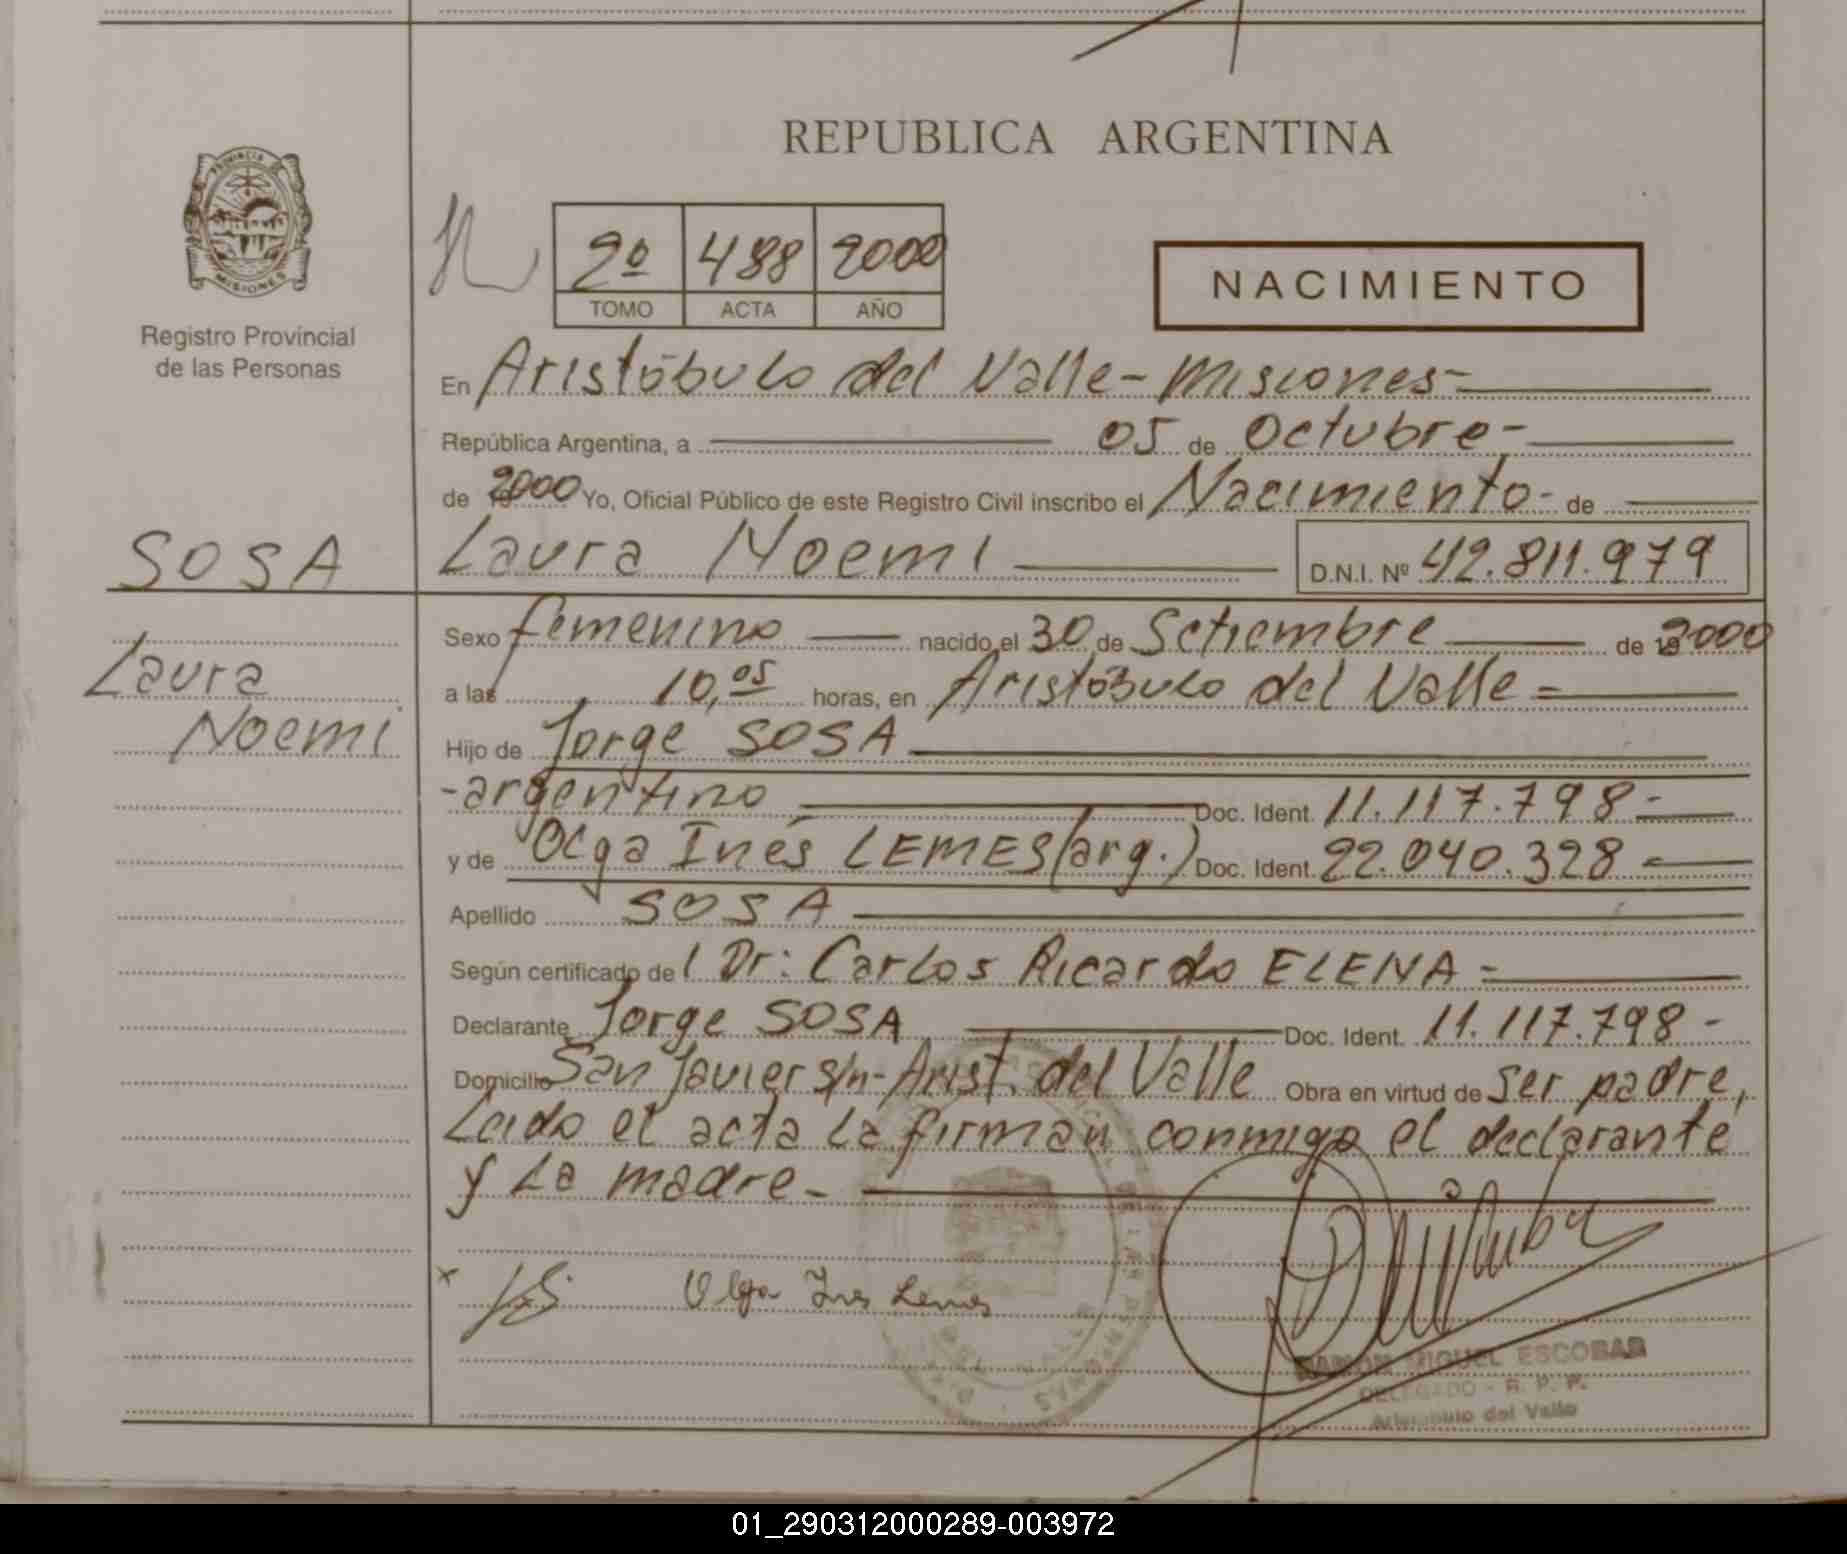 REPUBLICA ARGENTINA
PROVINCIA DE
MISIONES
Registro Provincial
de las Personas
2º 488 2000
TOMO ACTA AÑO
NACIMIENTO
En Aristóbulo del Valle - Misiones -
República Argentina, a 05 de Octubre -
de 2000 Yo, Oficial Público de este Registro Civil inscribo el Nacimiento - de
SOSA
Laura Noemi D.N.I. Nº 42.811.979
Sexo femenino nacido el 30 de Setiembre de 2000
Laura
Noemi
a las 10,05 horas, en Aristóbulo del Valle =
Hijo de Jorge SOSA
- argentino Doc. Ident. 11.117.798 -
y de Olga Inés LEMES (arg.) Doc. Ident. 22.040.328 -
Apellido SOSA
Según certificado del Dr: Carlos Ricardo ELENA =
Declarante Jorge SOSA Doc. Ident. 11.117.798 -
Domicilio San Javier s/n - Arist. del Valle Obra en virtud de ser padre,
Leido el acta la firman conmigo el declarante
y la madre -
x Olga Ines Lemes
RAMON MIGUEL ESCOBAR
DELEGADO - R. P. P.
Aristobulo del Valle
01_290312000289-003972